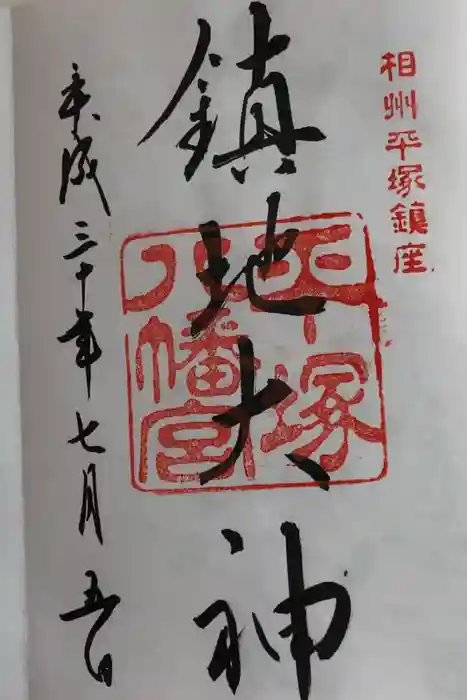 相州平塚鎮座
鎮地大神
平塚
八幡宮
平成三十年七月五日